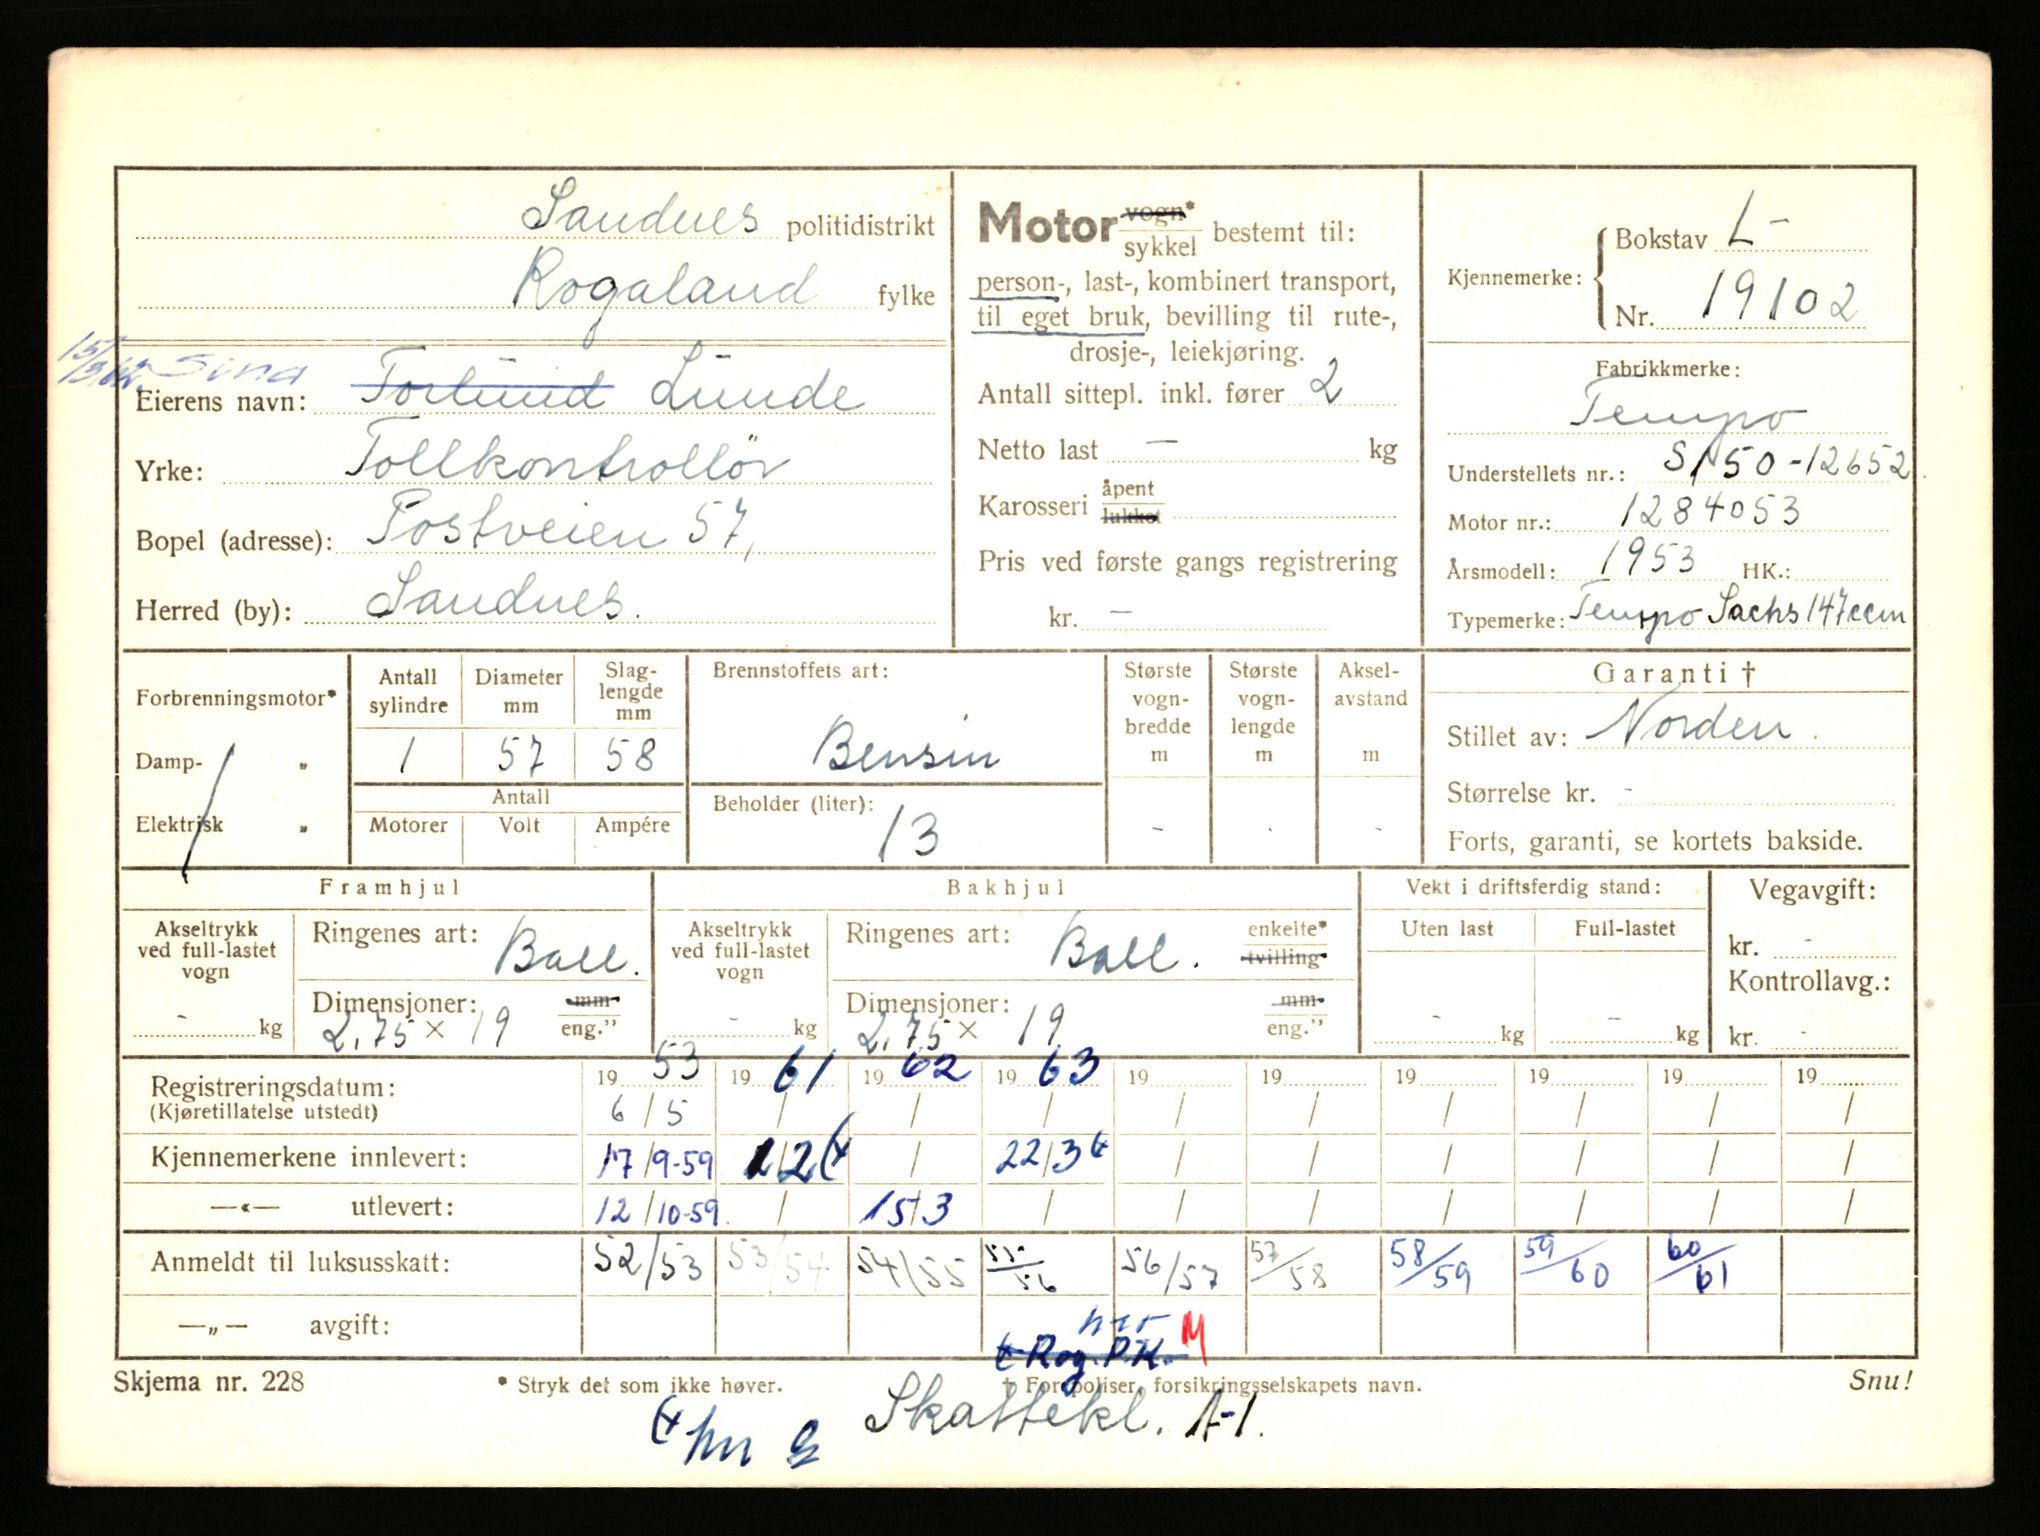 Sandnes politidistrikt
Rogaland fylke
Motor vogn* sykkel bestemt til:
person-, last-, kombinert transport,
til eget bruk, bevilling til rute-,
drosje-, leiekjøring.
Antall sittepl. inkl. fører 2
Netto last — kg
Karosseri åpent lukket
Pris ved første gangs registrering
kr. —
Kjennemerke: Bokstav L-
Nr. 19102
Fabrikkmerke:
Tempo
Understellets nr.: S/150-12652
Motor nr.: 1284053
Årsmodell: 1953 HK.:
Typemerke: Tempo Sachs 147ccm
15/3 Sina
Eierens navn: Torlund Lunde
Yrke: Tollkontrollör
Bopel (adresse): Postveien 57,
Herred (by): Sandnes.
Forbrenningsmotor*
Damp- „
Elektrisk „
Antall sylindre Diameter mm Slag-lengde mm
1 57 58
Antall
Motorer Volt Ampére
Brennstoffets art:
Bensin
Beholder (liter):
13
Største vogn-bredde m
-
Største vogn-lengde m
-
Aksel-avstand m
-
Garanti †
Stillet av: Norden.
Størrelse kr. -
Forts, garanti, se kortets bakside.
Framhjul
Akseltrykk ved full-lastet vogn
- kg
Ringenes art: Ball.
Dimensjoner: mm eng."
2,75 × 19
Bakhjul
Akseltrykk ved full-lastet vogn
- kg
Ringenes art: Ball. enkelte* tvilling*
Dimensjoner: mm eng."
2,75 × 19
Vekt i driftsferdig stand:
Uten last Full-lastet
- kg - kg
Vegavgift:
kr. -
Kontrollavg.:
kr. -
Registreringsdatum: 19 53 19 61 19 62 19 63 19 19 19 19 19 19
(Kjøretillatelse utstedt) 6/5 / / / / / / / / /
Kjennemerkene innlevert: 17/9-59 2 / 22/3 / / / / / /
—«— utlevert: 12/10-59. / 15/3 / / / / / / /
Anmeldt til luksusskatt: 52/53 53/54 54/55 55/56 56/57 57/58 58/59 59/60 60/61
—„— avgift:
Rog. P.K. M
Skjema nr. 228 * Stryk det som ikke høver. † For poliser, forsikringsselskapets navn. Snu!
Skattekl. A-1.